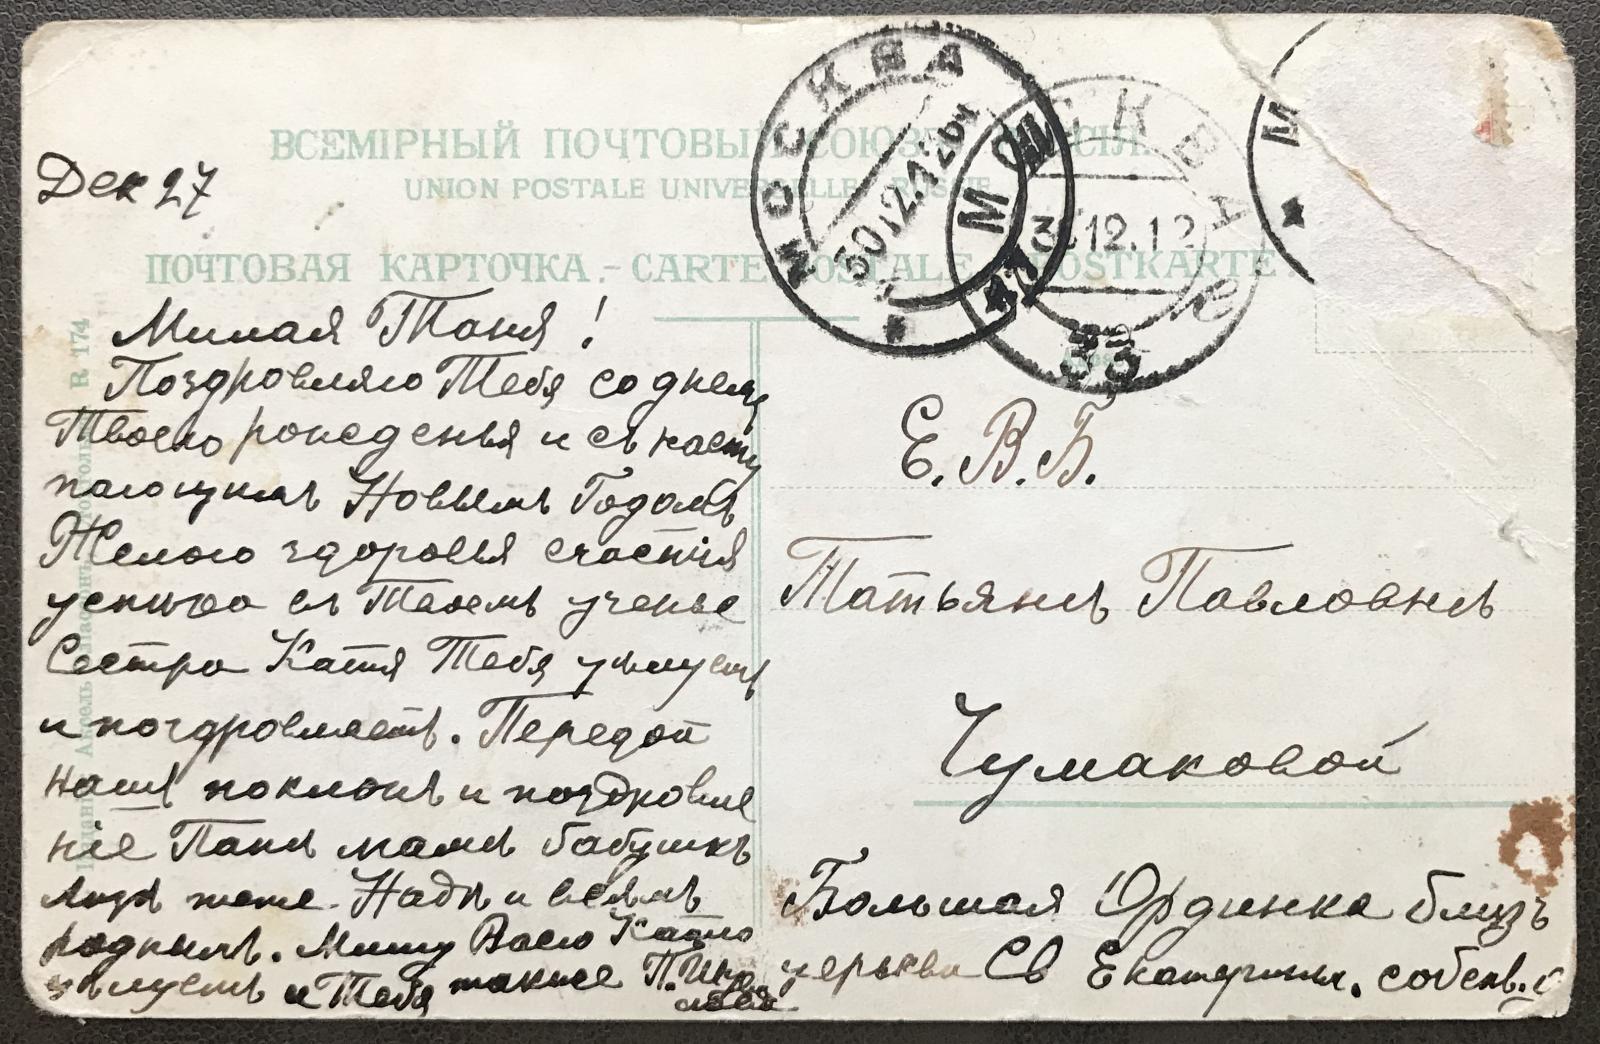 ВСЕМІРНЫЙ ПОЧТОВЫЙ СОЮЗЪ. РОССІЯ.
UNION POSTALE UNIVERSELLE. RUSSIE
ПОЧТОВАЯ КАРТОЧКА. - CARTE POSTALE - POSTKARTE
МОСКВА
30.12.12
МОСКВА
12.12
47
33
М
R 174
Дек 27
Милая Таня!
Поздровляю Тебя со днемъ
Твоего рожеденья и съ насту
пающимъ Новымъ Годомъ
Желаю здоровья счастія
успѣха въ Твоемъ ученье
Сестра Катя Тебя цѣлуетъ
и поздровляетъ. Передай
нашъ поклонъ и поздровле
ніе Папѣ мамѣ бабушкѣ
тете Надѣ и всѣмъ
роднымъ. Мишу Васю Катю
цѣлуемъ и Тебя также
Е. В. Б.
Татьянѣ Павловнѣ
Чумаковой
Большая Ордынка близъ
церькви Св Екатерины. собств. д